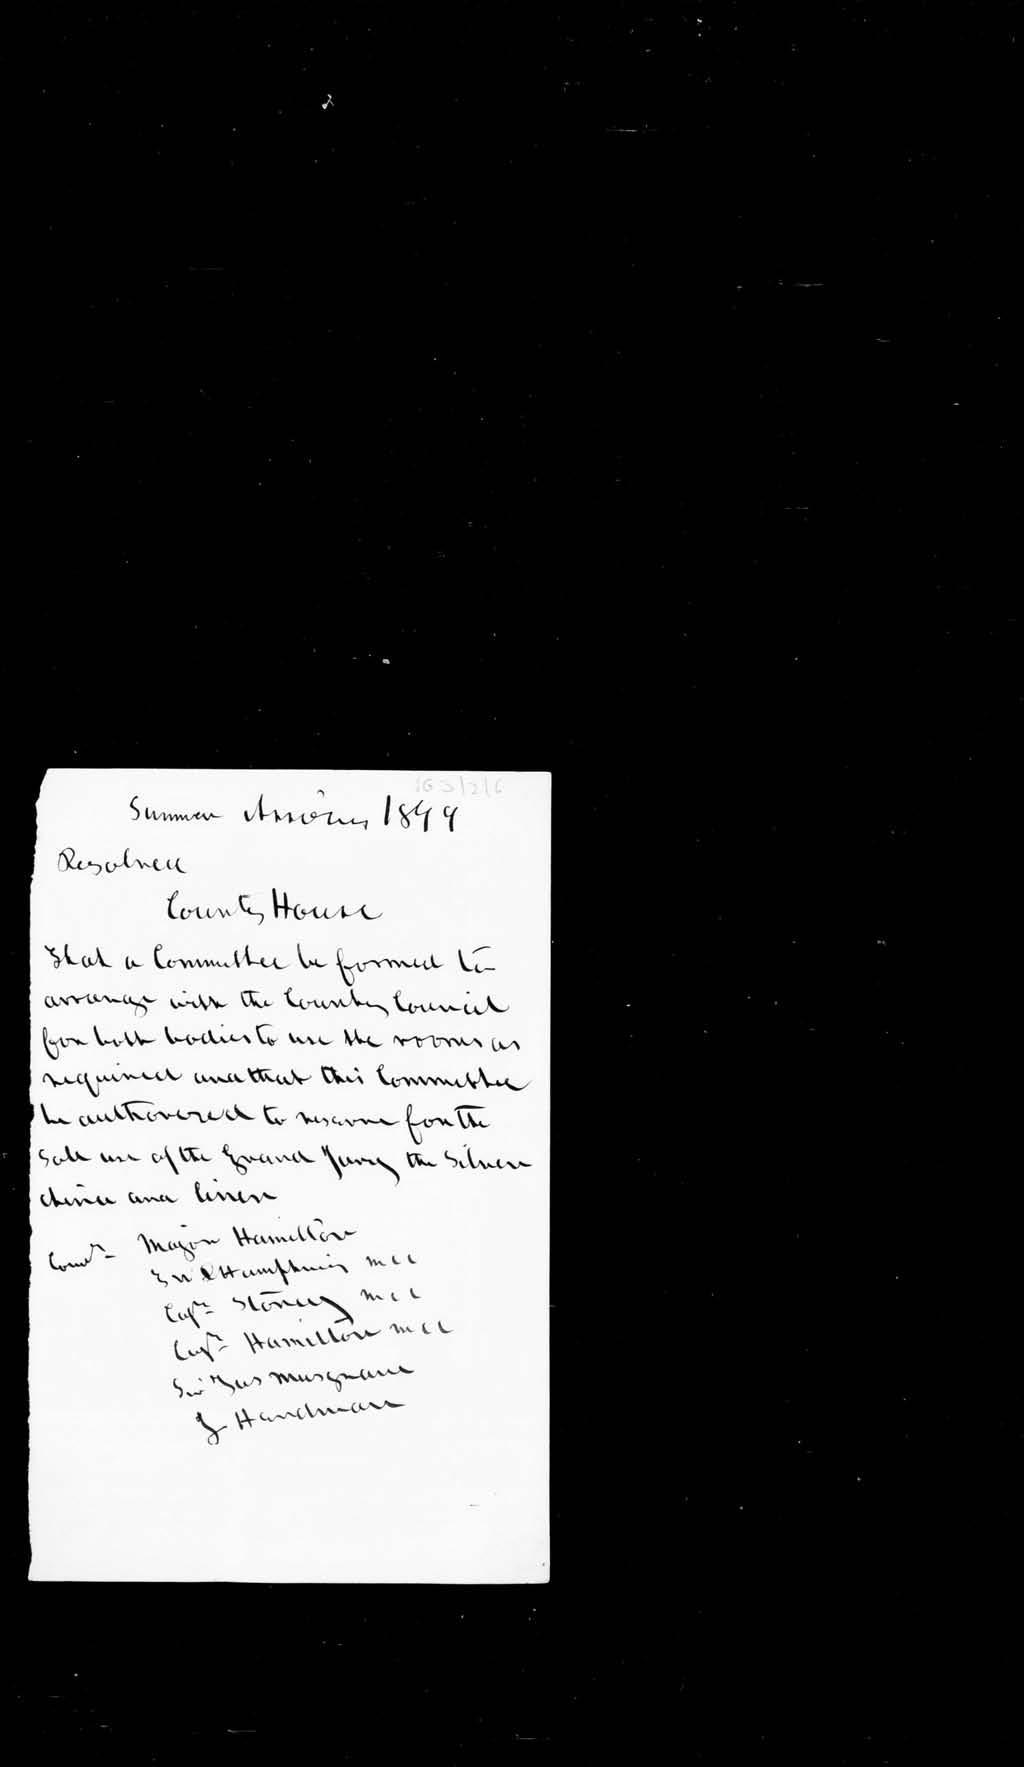 GJ/2/6
Summer Assizes 1899
Resolved
County House
That a Committee be formed to
arrange with the County Council
for both bodies to use the rooms as
required and that this Committee
be authorized to reserve for the
sole use of the Grand Jury the Silver
china and linen
Com^r Major Hamilton
Humphries MCC
Cap^n Stoney MCC
Cap^n Hamilton MCC
Sir Jas Musgrave
J Hardman